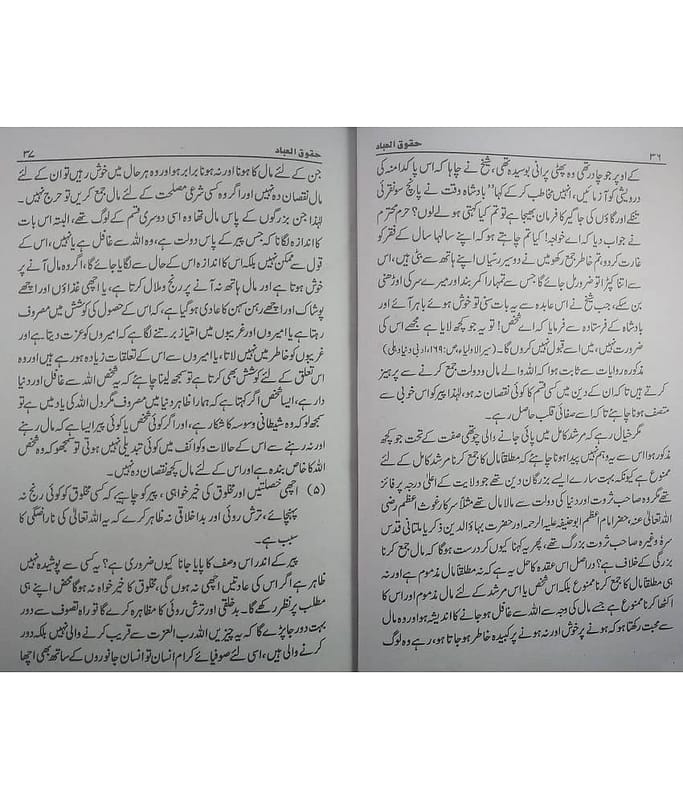 ۳۶ حقوق العباد
کے اوپر جو چادر تھی وہ پھٹی پرانی بوسیدہ تھی، شیخ نے چاہا کہ اس پاکدامنہ کی
درویشی کو آزمائیں، انہیں مخاطب کر کے کہا” بادشاہ وقت نے پانچ سو نقرئی
تنکے اور گاؤں کی جاگیر کا فرمان بھیجا ہے تو تم کیا کہتی ہو لے لوں؟ حرم محترم
نے جواب دیا کہ اے خواجہ! کیا تم چاہتے ہو کہ اپنے سالہا سال کے فقر کو
غارت کر دو، تم خاطر جمع رکھو میں نے دو سیر رسیاں اپنے ہاتھ سے بٹی ہیں، اس
سے اتنا کپڑا تو ضرور مل جائے گا جس سے تمہارا کمر بند اور میرے سر کی اوڑھنی
بن سکے، جب شیخ نے اس عابدہ سے یہ بات سنی تو خوش ہوئے باہر آئے اور
بادشاہ کے فرستادہ سے فرمایا کہ اے شخص! تو یہ جو کچھ لایا ہے مجھے اس کی
ضرورت نہیں، میں اسے قبول نہیں کروں گا۔ (سیر الاولیاء، ص:۱۶۹، ادبی دنیا دہلی)
مذکورہ روایات سے ثابت ہوا کہ اللہ والے مال و دولت جمع کرنے سے پرہیز
کرتے ہیں تا کہ ان کے دین میں کسی قسم کا کوئی نقصان نہ ہو، لہٰذا پیر کو اس خوبی سے
متصف ہونا چاہئے تا کہ اسے صفائی قلب حاصل رہے۔
مگر خیال رہے کہ مرشد کامل میں پائی جانے والی چوتھی صفت کے تحت جو کچھ
مذکور ہوا اس سے یہ وہم نہیں پیدا ہونا چاہئے کہ مطلقا مال کا جمع کرنا مرشد کامل کے لئے
ممنوع ہے کیونکہ بہت سارے ایسے بزرگان دین تھے جو ولایت کے اعلیٰ درجہ پر فائز
تھے مگر وہ صاحب ثروت اور دنیا کی دولت سے مالا مال تھے مثلاً سرکار غوث اعظم رضی
اللہ تعالیٰ عنہ، حضر امام اعظم ابوحنیفہ علیہ الرحمہ اور حضرت بہاؤالدین ذکریا ملتانی قدس
سرہ وغیرہ صاحب ثروت بزرگ تھے، پھر یہ کہنا کیوں کر درست ہوگا کہ مال جمع کرنا
بزرگی کے خلاف ہے؟ در اصل اس عقدہ کا حل یہ ہے کہ نہ مطلقا مال مذموم ہے اور نہ
ہی مطلقا مال کا جمع کرنا ممنوع بلکہ اس شخص یا اس مرشد کے لئے مال مذموم اور اس کا
اکٹھا کرنا ممنوع ہے جسے مال کی وجہ سے اللہ سے غافل ہو جانے کا اندیشہ ہو اور وہ مال
سے محبت رکھتا ہو کہ ہونے پر خوش اور نہ ہونے پر کبیدہ خاطر ہو جاتا ہو، رہے وہ لوگ
حقوق العباد ۳۷
جن کے لئے مال کا ہونا اور نہ ہونا برابر ہو اور وہ ہر حال میں خوش رہیں تو ان کے لئے
مال نقصان دہ نہیں اور اگر وہ کسی شرعی مصلحت کے لئے مال جمع کریں تو حرج نہیں۔
لہٰذا جن بزرگوں کے پاس مال تھا وہ اسی دوسری قسم کے لوگ تھے، البتہ اس بات
کا اندازہ لگانا کہ جس پیر کے پاس دولت ہے، وہ اللہ سے غافل ہے یا نہیں، اس کے
قول سے ممکن نہیں بلکہ اس کا اندازہ اس کے حال سے لگایا جائے گا، اگر وہ مال آنے پر
خوش ہوتا ہے اور مال ہاتھ نہ آنے پر رنج و ملال کرتا ہے، یا اچھی غذاؤں اور اچھے
پوشاک اور اچھے رہن سہن کا عادی ہو گیا ہے، کہ اس کے حصول کی کوشش میں مصروف
رہتا ہے یا امیروں اور غریبوں میں امتیاز برتنے لگا ہے کہ امیروں کو عزت دیتا ہے اور
غریبوں کو خاطر میں نہیں لاتا، یا امیروں سے اس کے تعلقات زیادہ ہورہے ہیں اور وہ
اس تعلق کے لئے کوشش بھی کرتا ہے تو سمجھ لینا چاہئے کہ یہ شخص اللہ سے غافل اور دنیا
دار ہے، ایسا شخص اگر کہتا ہے کہ ہمارا ظاہر دنیا میں مصروف مگر دل اللہ کی یاد میں ہے تو
سمجھ لو کہ وہ شیطانی وسوسہ کا شکار ہے، اور اگر کوئی شخص یا کوئی پیر ایسا ہے کہ مال رہنے
اور نہ رہنے سے اس کے حالات و کوائف میں کوئی تبدیلی نہیں ہوتی تو سمجھو کہ وہ شخص
اللہ کا خاص بندہ ہے اور اس کے لئے مال کچھ نقصان دہ نہیں۔
(۵) اچھی خصلتیں اور مخلوق کی خیر خواہی، پیر کو چاہیے کہ کسی مخلوق کو کوئی رنج نہ
پہنچائے، ترش روئی اور بداخلاقی نہ ظاہر کرے کہ یہ اللہ تعالیٰ کی ناراضگی کا
سبب ہے۔
پیر کے اندر اس وصف کا پایا جانا کیوں ضروری ہے؟ یہ کسی سے پوشیدہ نہیں
ظاہر ہے اگر اس کی عادتیں اچھی نہ ہوں گی، مخلوق کا خیر خواہ نہ ہوگا محض اپنے ہی
مطلب پر نظر رکھے گا۔ بدخلقی اور ترش روئی کا مظاہرہ کرے گا تو راہ تصوف سے دور
بہت دور جا پڑے گا کہ یہ چیزیں اللہ رب العزت سے قریب کرنے والی نہیں بلکہ دور
کرنے والی ہیں، اسی لئے صوفیائے کرام انسان تو انسان جانوروں کے ساتھ بھی اچھا